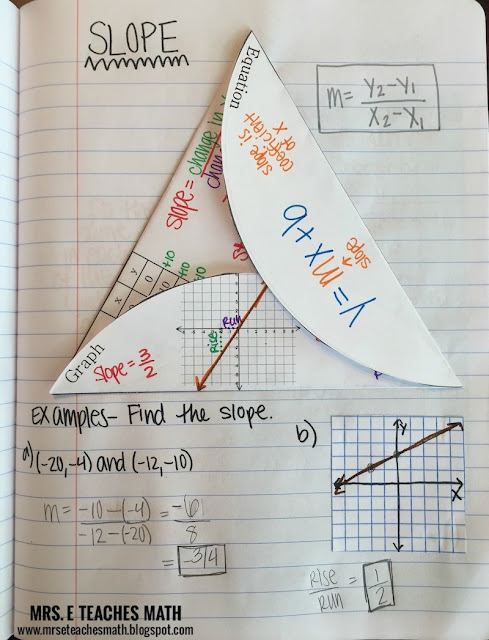 SLOPE
m = y₂-y₁ / x₂-x₁
Equation
slope is
coefficient
of x
y = mx + b
slope
slope = change in y
x
y
0
+10
+10
+10
Graph
slope = 3/2
Rise
Run
Examples- Find the slope.
a) (-20,-4) and (-12,-10)
m = -10-(-4) / -12-(-20) = -6 / 8
= -3/4
b)
y
x
rise / run = 1/2
MRS. E TEACHES MATH
www.mrseteachesmath.blogspot.com